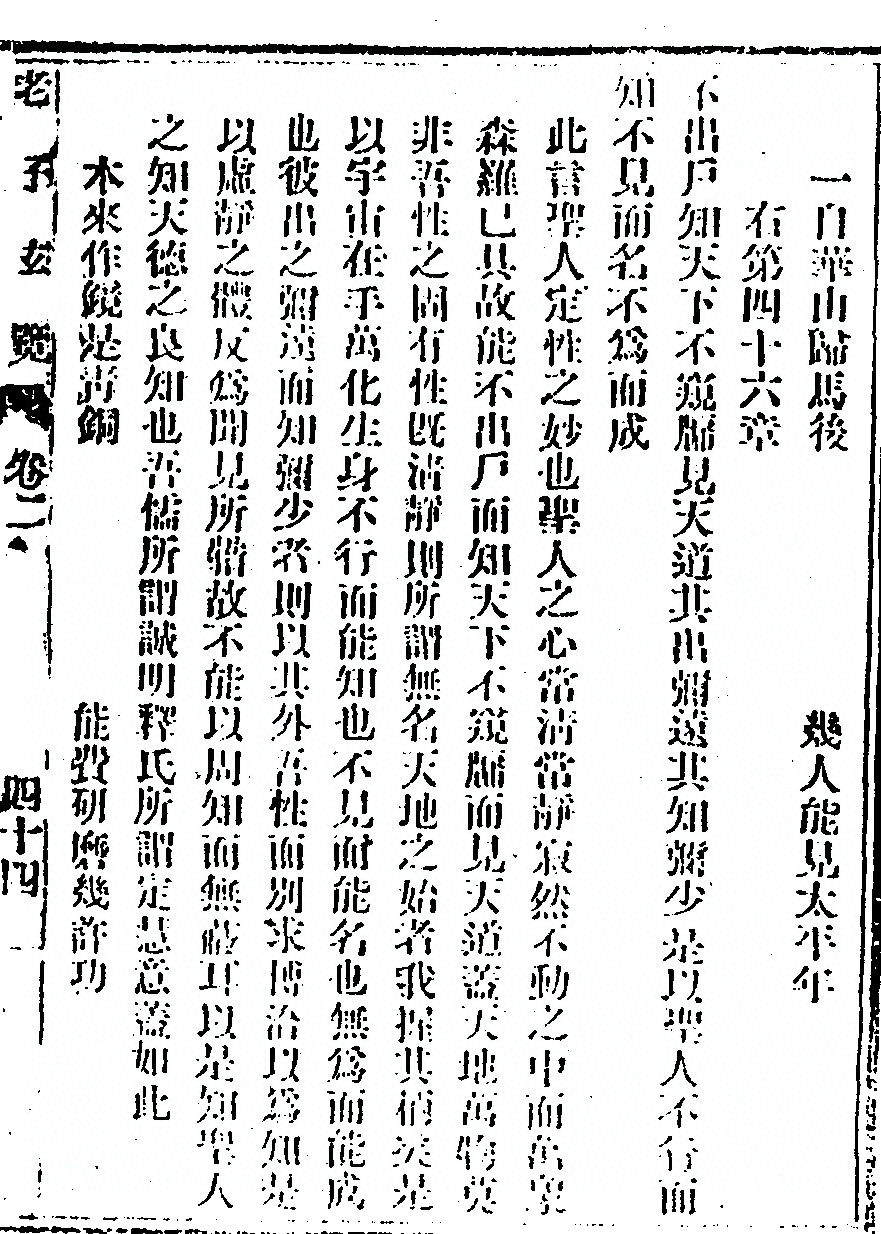 一自華山歸馬後　幾人能見太平年
右第四十六章
不出戶知天下不窺牖見天道其出彌遠其知彌少是以聖人不行而
知不見而名不爲而成
此言聖人定性之妙也聖人之心常清常靜寂然不動之中而萬象
森羅已具故能不出戶而知天下不窺牖而見天道蓋天地萬物莫
非吾性之固有性既清靜則所謂無名天地之始者我握其柄矣是
以宇宙在手萬化生身不行而能知也不見而能名也無爲而能成
也彼出之彌遠而知彌少者則以其外吾性而別求博洽以爲知是
以虛靜之體反爲聞見所牿故不能以周知而無蔽耳以是知聖人
之知天德之良知也吾儒所謂誠明釋氏所謂定慧意蓋如此
本來作鏡是靑銅　能費研磨幾許功
老子玄覽
卷二
四十四